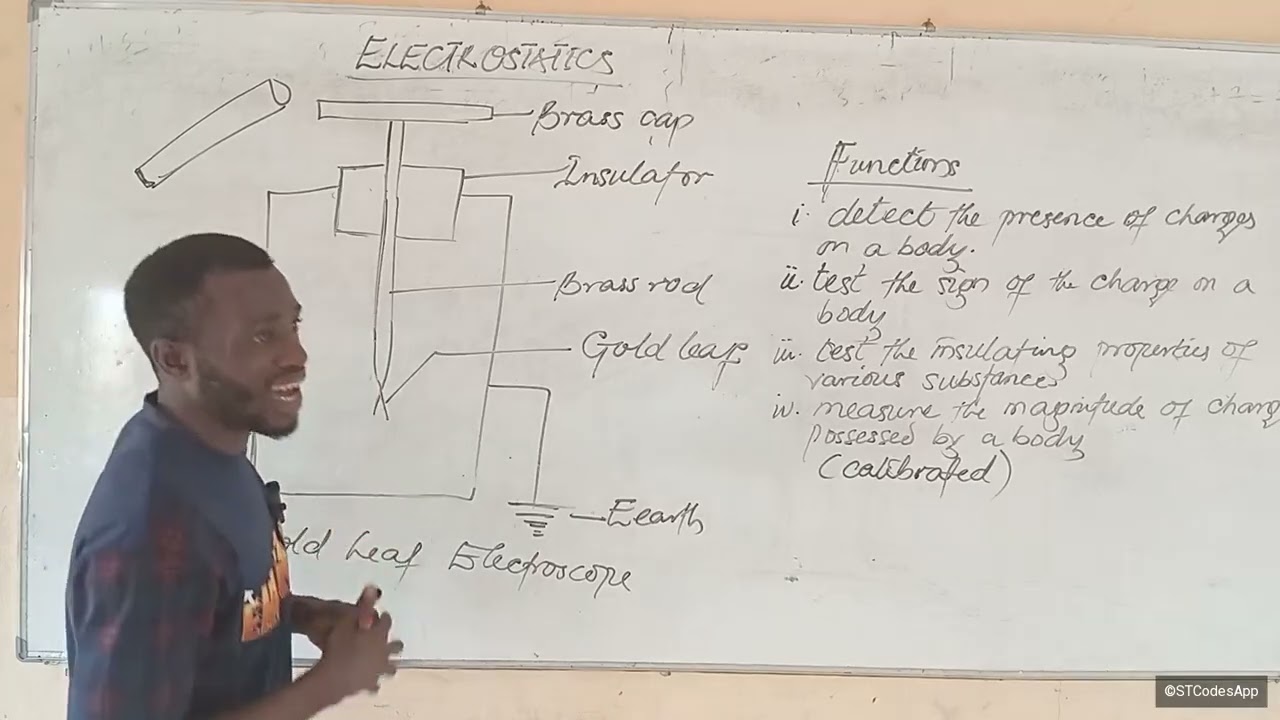 ELECTROSTATICS
Brass cap
Insulator
Brass rod
Gold leaf
Eearth
old Leaf Electroscope
Functions
i. detect the presence of charges
on a body.
ii. test the sign of the charge on a
body
iii. test the insulating properties of
various substances
iv. measure the magnitude of charg
possessed by a body
(calibrated)
©STCodesApp